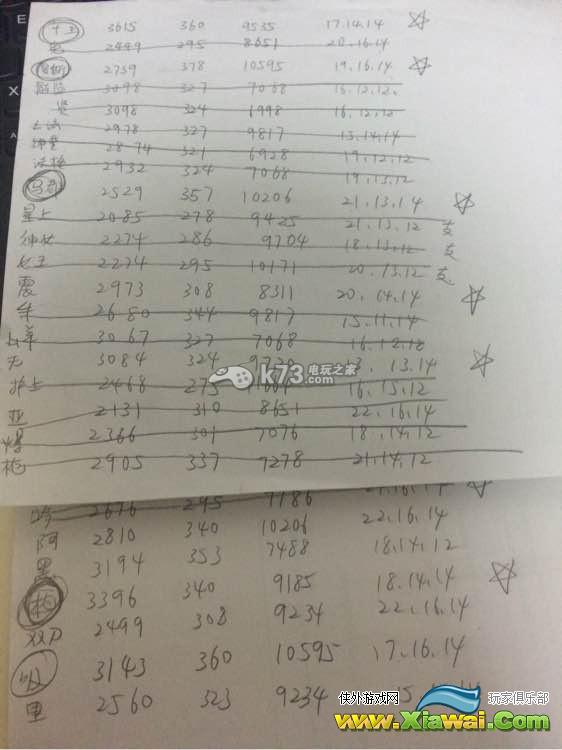 E
X
十王 3615 360 9535 17.14.14 ☆
2499 295 8651 20.16.14
2759 378 10595 19.16.14 ☆
3098 327 7068 15.12.12
3098 324 6998 16.12.12
2978 327 9817 15.14.14
2874 321 6928 19.12.12
2932 324 7068 19.13.12
2529 357 10206 21.13.14 ☆
星上 2085 278 9425 21.13.12 支
绅女 2274 286 9704 18.13.12 支
女王 2274 295 10171 20.13.12 支
震 2973 308 8311 20.14.14 ☆
2680 344 9817 15.11.14
3067 327 7068 16.12.12
无 3084 324 13.14 ☆
2468 275 16.15.12
亚 2131 310 8651 22.16.14
2366 301 7076 18.14.12
枪 2905 337 7278 21.14.12
k73 电玩之家
.com
2676 295 7186 16.14
阿 2810 340 10206 22.16.14
黑 3194 353 7488 18.14.12
3396 340 9185 18.14.14 ☆
双刀 2499 308 9234 22.16.14
3143 360 10595 17.16.14
里 2560 323 9234
侠外游戏网 玩家俱乐部
www.Xiawai.com